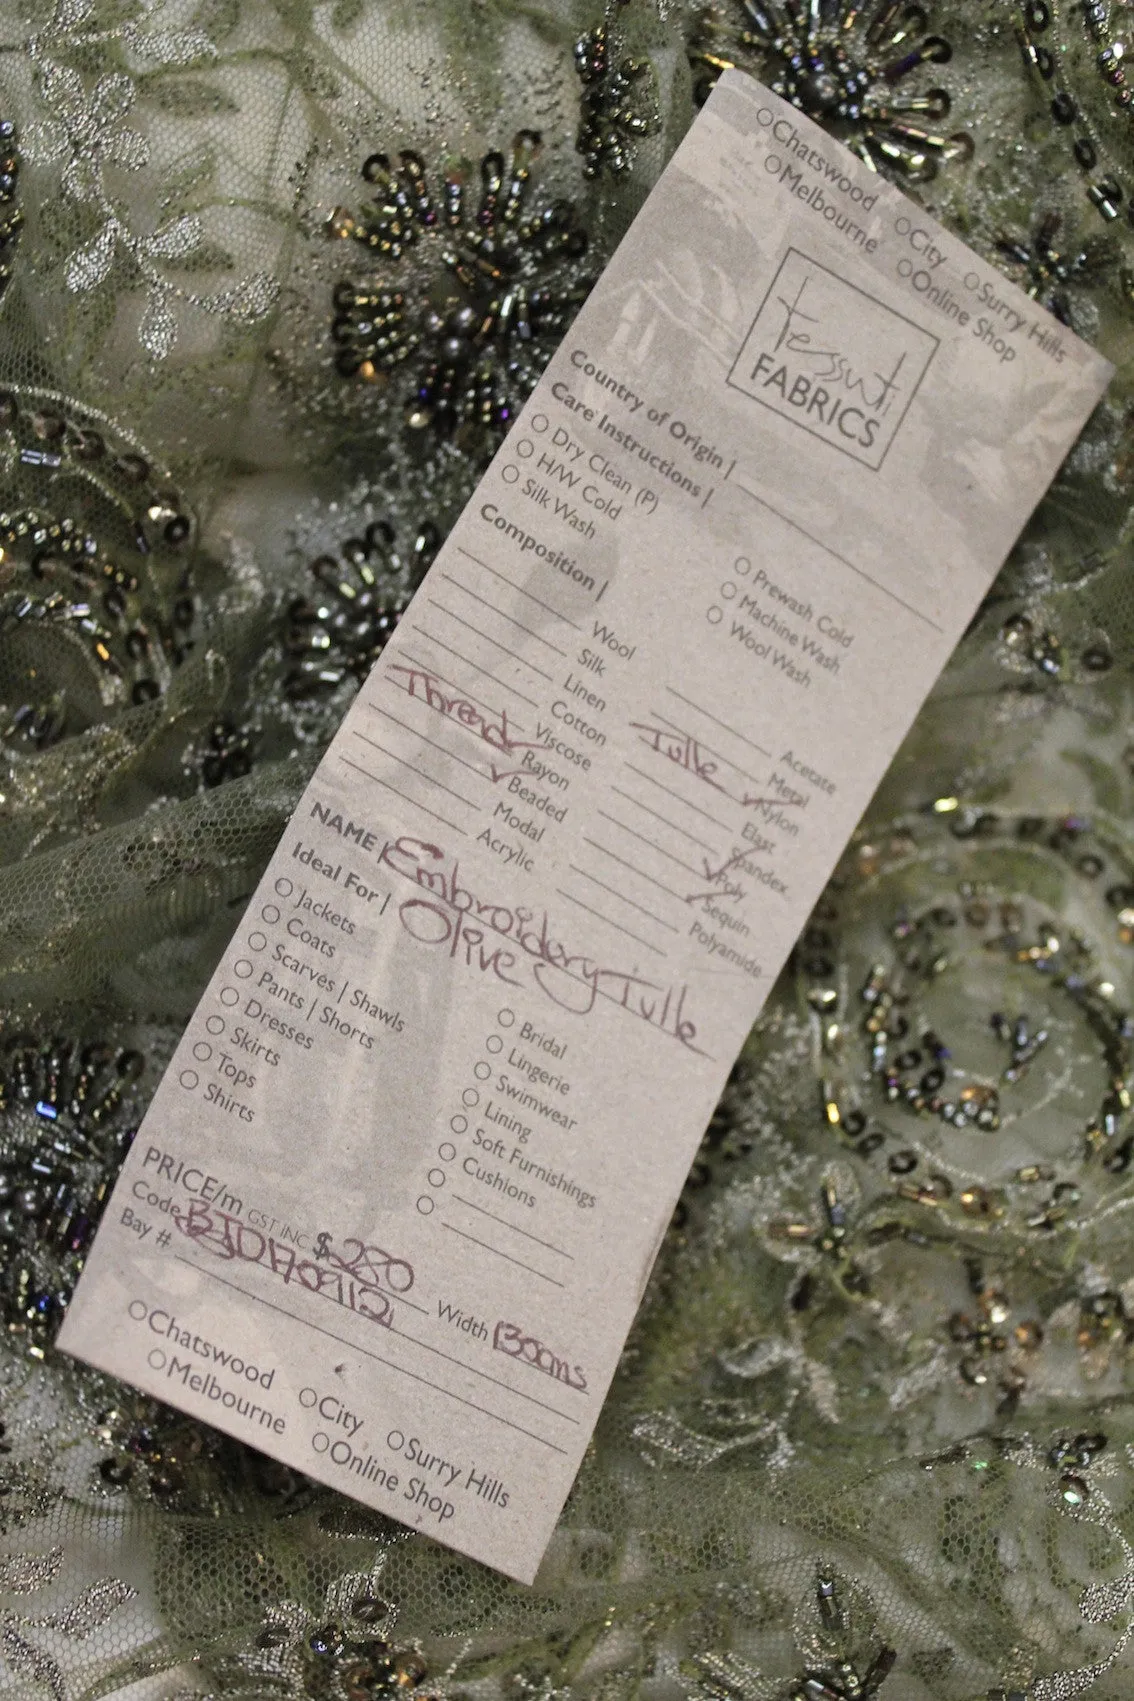 ○Chatswood ○City ○Surry Hills
○Melbourne ○Online Shop
Tessuti
FABRICS
Country of Origin |
Care Instructions |
○ Dry Clean (P) ○ Prewash Cold
○ H/W Cold ○ Machine Wash
○ Silk Wash ○ Wool Wash
Composition |
Wool Acetate
Silk Metal
Linen Tulle ✓ Nylon
Cotton Elast
Viscose Spandex
Thread Rayon ✓ Poly
✓ Beaded ✓ Sequin
Modal Polyamide
Acrylic
NAME | Embroidery Tulle
Olive
Ideal For |
○ Jackets ○ Bridal
○ Coats ○ Lingerie
○ Scarves | Shawls ○ Swimwear
○ Pants | Shorts ○ Lining
○ Dresses ○ Soft Furnishings
○ Skirts ○ Cushions
○ Tops ○
○ Shirts ○
PRICE/m GST INC $280
Code Width 130cms
Bay #
○Chatswood ○City ○Surry Hills
○Melbourne ○Online Shop